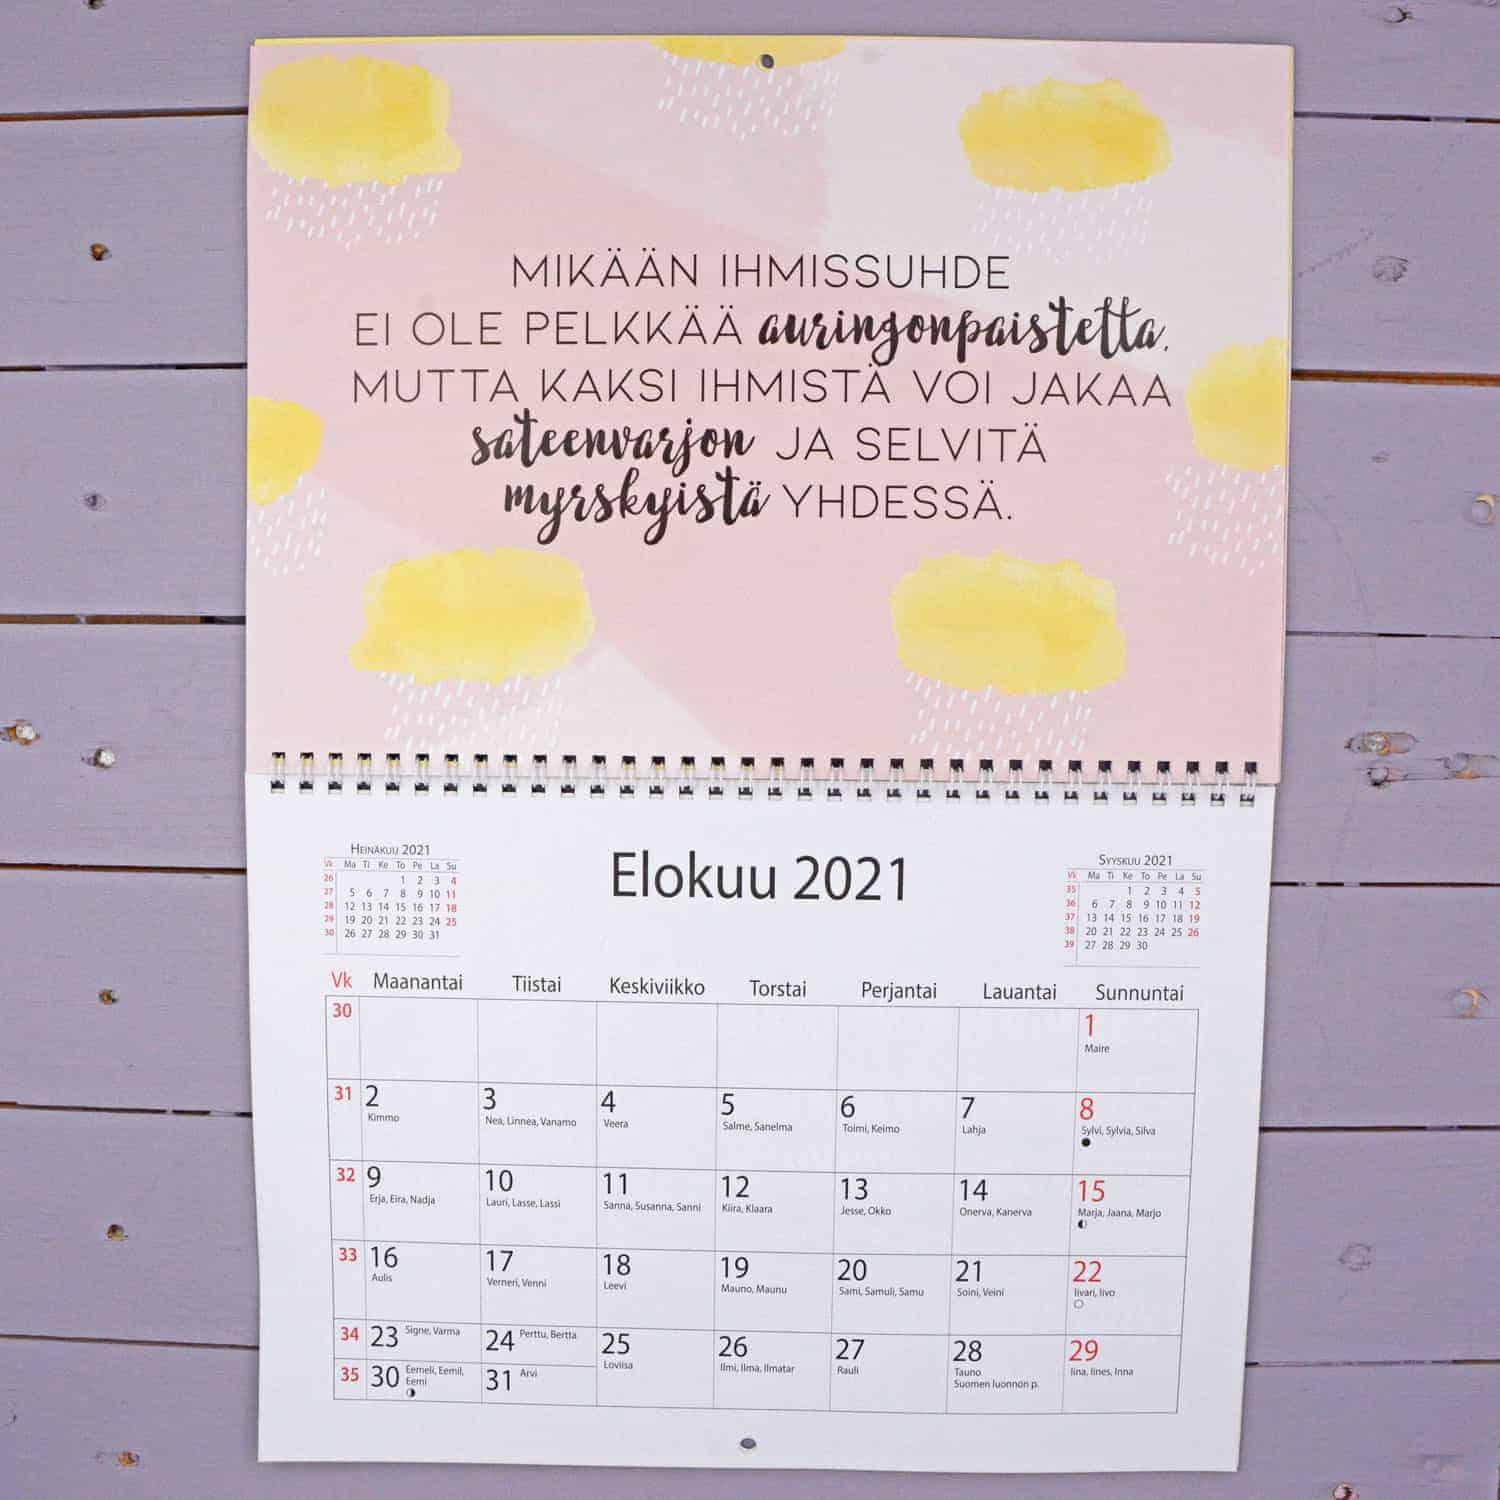 MIKÄÄN IHMISSUHDE
EI OLE PELKKÄÄ auringonpaistetta.
MUTTA KAKSI IHMISTÄ VOI JAKAA
sateenvarjon JA SELVITÄ
myrskyistä YHDESSÄ.
HEINÄKUU 2021
Vk Ma Ti Ke To Pe La Su
26 1 2 3 4
27 5 6 7 8 9 10 11
28 12 13 14 15 16 17 18
29 19 20 21 22 23 24 25
30 26 27 28 29 30 31
Elokuu 2021
SYYSKUU 2021
Vk Ma Ti Ke To Pe La Su
35 1 2 3 4 5
36 6 7 8 9 10 11 12
37 13 14 15 16 17 18 19
38 20 21 22 23 24 25 26
39 27 28 29 30
Vk Maanantai Tiistai Keskiviikko Torstai Perjantai Lauantai Sunnuntai
30 1
Maire
31 2 3 4 5 6 7 8
Kimmo Nea, Linnea, Vanamo Veera Salme, Sanelma Toimi, Keimo Lahja Sylvi, Sylvia, Silva
32 9 10 11 12 13 14 15
Erja, Eira, Nadja Lauri, Lasse, Lassi Sanna, Susanna, Sanni Kiira, Klaara Jesse, Okko Onerva, Kanerva Marja, Jaana, Marjo
33 16 17 18 19 20 21 22
Aulis Verneri, Venni Leevi Mauno, Maunu Sami, Samuli, Samu Soini, Veini Iivari, Iivo
34 23 Signe, Varma 24 Perttu, Bertta 25 26 27 28 29
Loviisa Ilmi, Ilma, Ilmatar Rauli Tauno Iina, Iines, Inna
Suomen luonnon p.
35 30 Eemeli, Eemil, 31 Arvi
Eemi